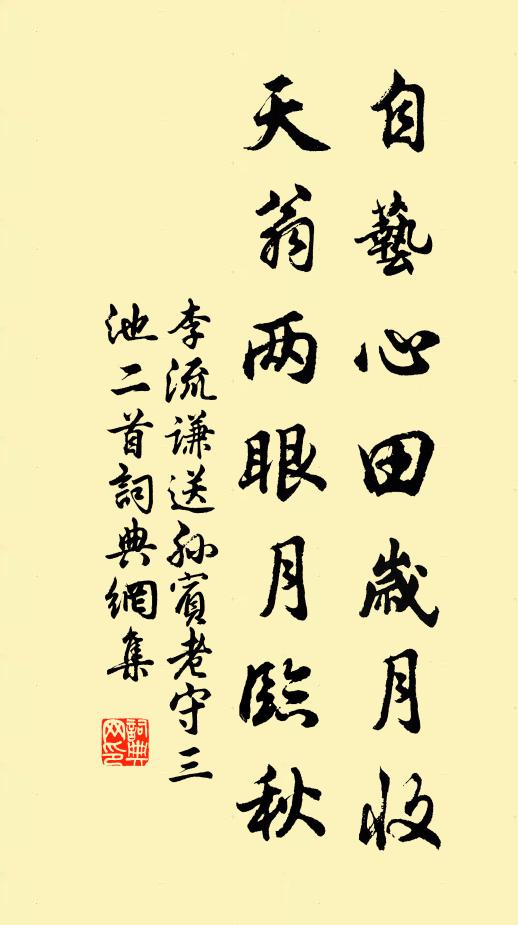 自藝心田歲月收
天翁两眼月臨秋
李流謙送孙賓老守三
池二首詞典網集
詞典网印